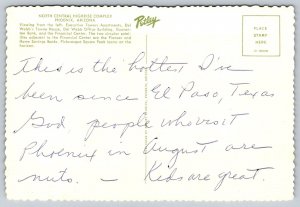 NORTH CENTRAL HIGHRISE COMPLEX
PHOENIX, ARIZONA
Viewing from the left, Executive Towers Apartments, Del
Webb's Towne House, Del Webb Office Building, Guaran-
tee Bank, and the Financial Center. The two circular satel-
lites adjacent to the Financial Center are the Pioneer and
Home Savings Banks. Picturesque Squaw Peak looms on the
horizon.
Petley
PLACE
STAMP
HERE
This is the hottest I've
been since El Paso, Texas
God people who visit
Phoenix in August are
nuts. — Kids are great.